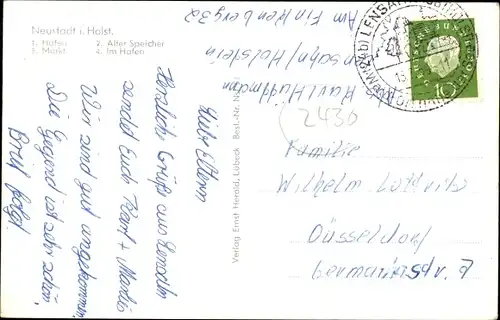 Neustadt i. Holst.
1. Hafen 2. Alter Speicher
3. Markt 4. Im Hafen
Liebe Eltern
Herzliche Grüße aus Lensahn
sendet Euch Karl + Marlis
Wir sind gut angekommen,
Die Gegend ist sehr schön,
Brief folgt.
Verlag Ernst Herold, Lübeck Best.-Nr. N
Karl Huffmann
Lensahn/Holstein
Am Finkenberg 32
LENSAHN
DEUTSCHE BUNDESPOST
10
2430
Familie
Wilhelm
Düsseldorf